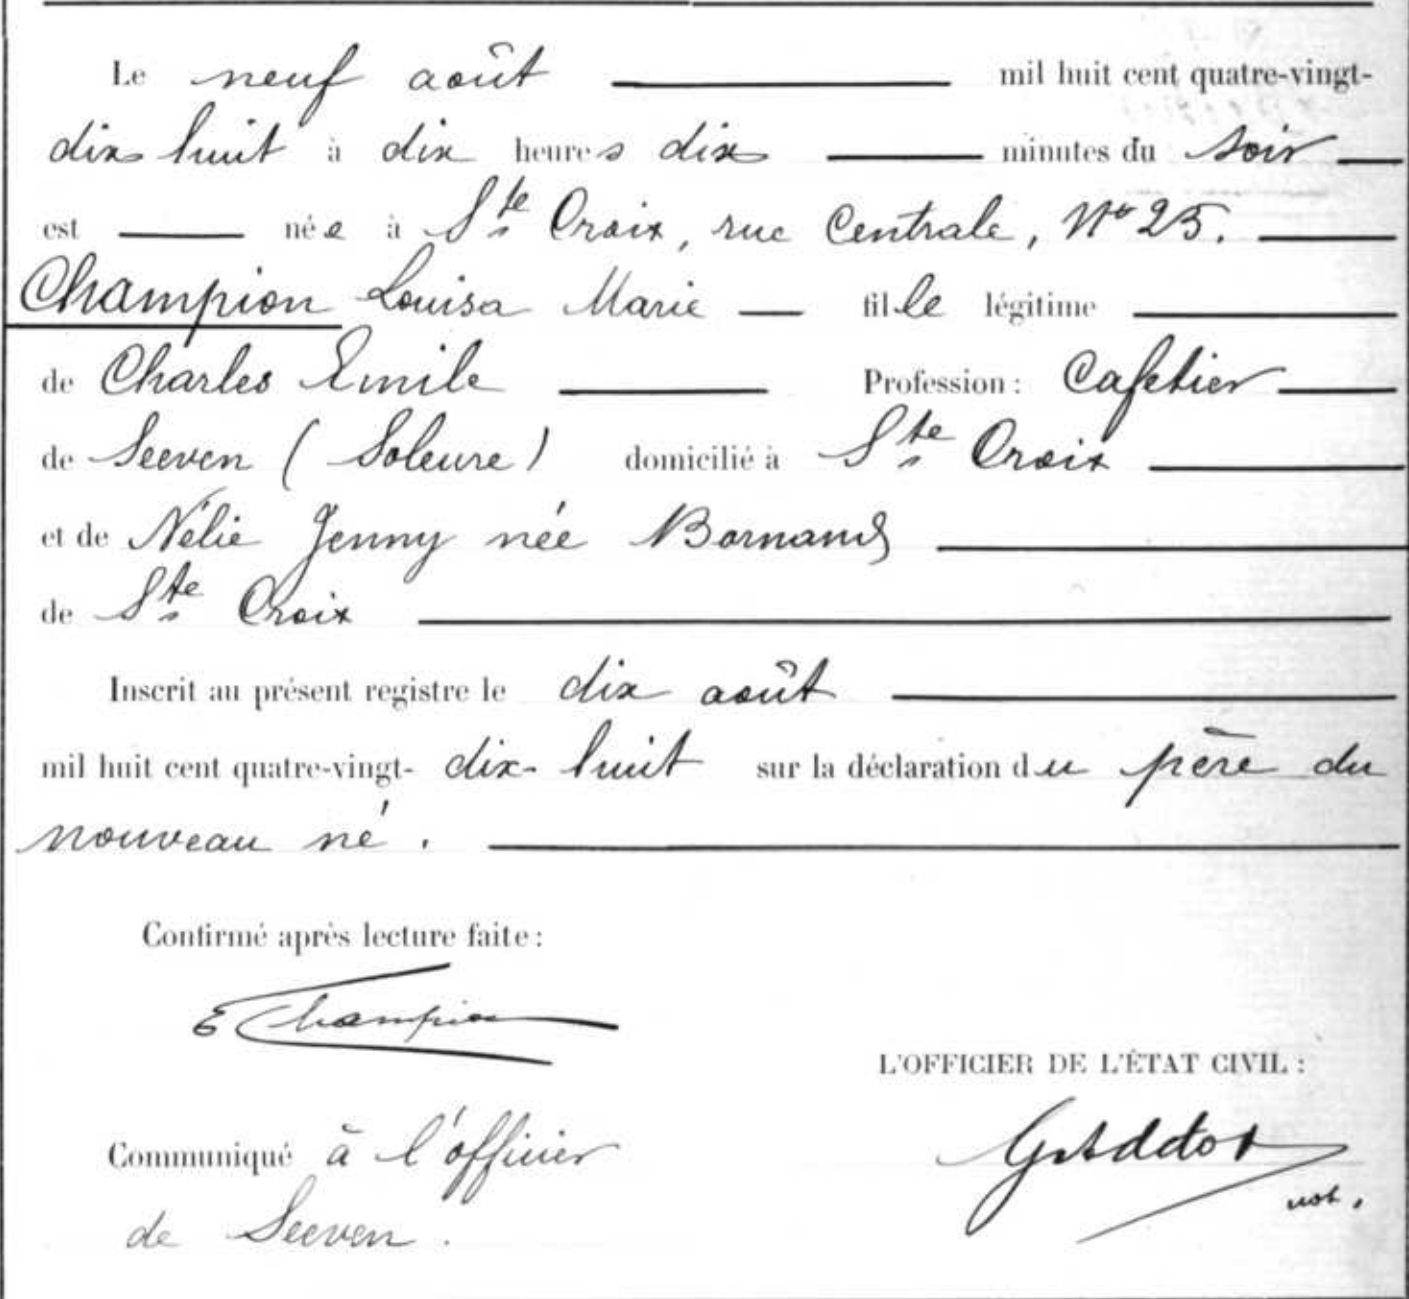 Le neuf août mil huit cent quatre-vingt-
dix huit à dix heures dix minutes du soir
est née à Ste Croix, rue Centrale, No 25.
Champion Louisa Marie fille légitime
de Charles Emile Profession : Cafetier
de Seeven (Soleure) domicilié à Ste Croix
et de Nélie Jenny née Bornand
de Ste Croix
Inscrit au présent registre le dix août
mil huit cent quatre-vingt- dix-huit sur la déclaration du père du
nouveau né.
Confirmé après lecture faite :
E Champion
L'OFFICIER DE L'ÉTAT CIVIL :
Communiqué à l'officier
not.
de Seeven.